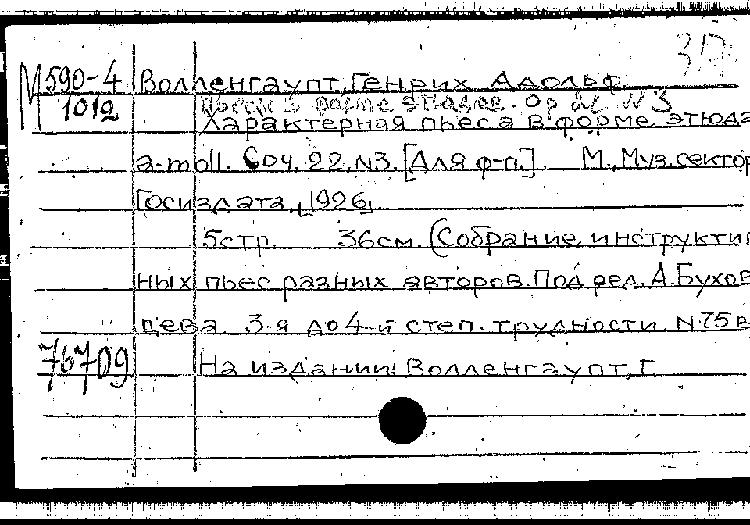 317
М590-4 Волленгаупт, Генрих Адольф.
1012 Пьеса в форме этюдов. Op 22 N 3
Характерная пьеса в форме этюда
a-moll. Соч. 22, N3. [Для ф-п.] М., Муз. сектор
Госиздата, [1926]
5 стр. 36 см. (Собрание инструктив
ных пьес разных авторов. Под ред. А. Бухов
цева. 3-я до 4-й степ. трудности N75в
76709 На издании: Волленгаупт, Г.